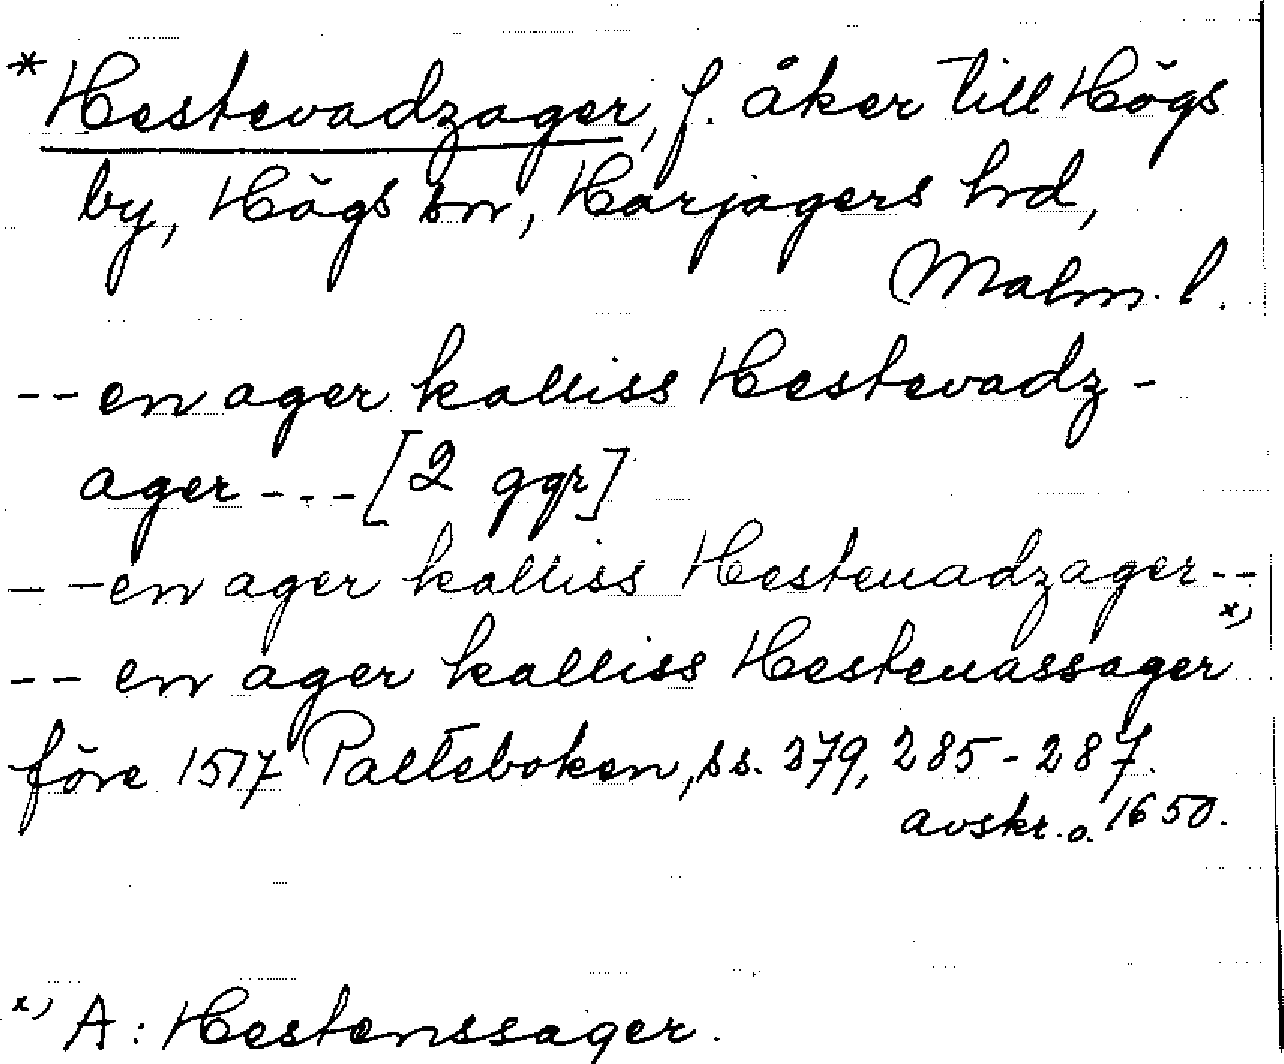 * Hestevadzager, f. åker till Högs
by, Högs sn, Harjagers hrd,
Malm. l.
-- en ager kalliss Hestevadz-
ager --- [2 ggr]
-- en ager kalliss Hesteuadzager --
-- en ager kalliss Hesteuassager x)
före 1517 Palteboken, ss. 279, 285-287.
avskr. o. 1650.
x) A: Hestenssager.